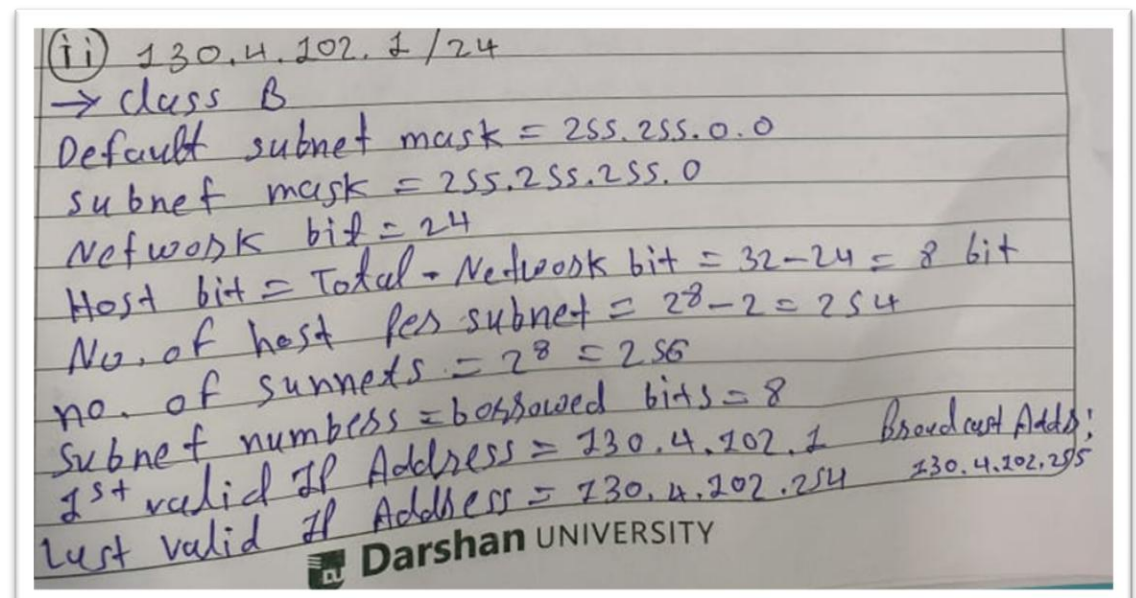 (ii) 130.4.102.1/24
→ class B
Default subnet mask = 255.255.0.0
subnet mask = 255.255.255.0
Network bit = 24
Host bit = Total - Network bit = 32-24 = 8 bit
No. of host Per subnet = 2⁸-2 = 254
no. of sunnets = 2⁸ = 256
Subnet numbers = borrowed bits = 8
1st valid IP Address = 130.4.102.1 Broadcast Addr:
130.4.102.255
Last valid IP Address = 130.4.102.254
DU Darshan UNIVERSITY